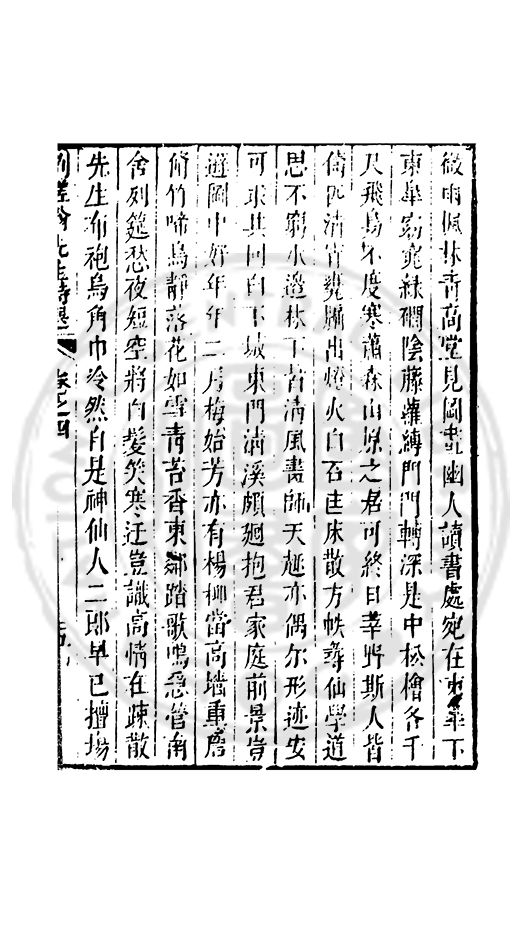 微雨佩林青高堂見圖畫幽人讀書處宛在東皐下
東皐窈窕綠礀陰藤蘿縛門門轉深是中松檜各千
尺飛鳥不度寒蕭森山原之居可終日莘野斯人皆
儔匹清宵甕牖出燈火白石座床散方帙尋仙學道
思不窮水邊林下苦清風畫師天趣亦偶尔形迹安
可求其同白下城東門清溪頗廻抱君家庭前景豈
遊圖中好年年二月梅始芳亦有楊柳當高墻重簷
脩竹啼鳥靜落花如雪青苔香東鄰踏歌鳴急管南
舍列筵愁夜短空將白髮笑寒迂豈識高情在疎散
先生布袍烏角巾泠然自是神仙人二郎早已擅場
先生詩選 卷之四